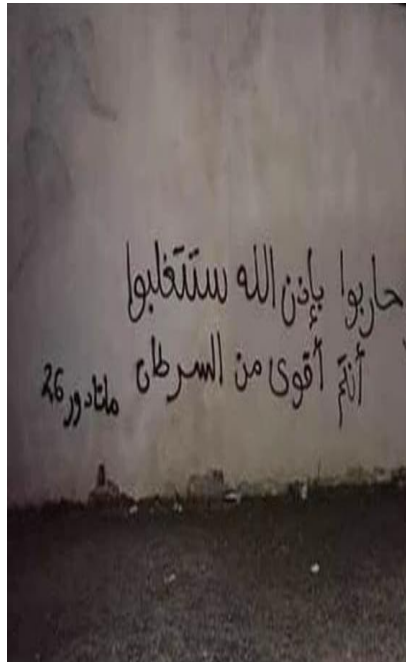 حاربوا بإذن الله ستتغلبوا
أنتم أقوى من السرطان
ماتادور 26